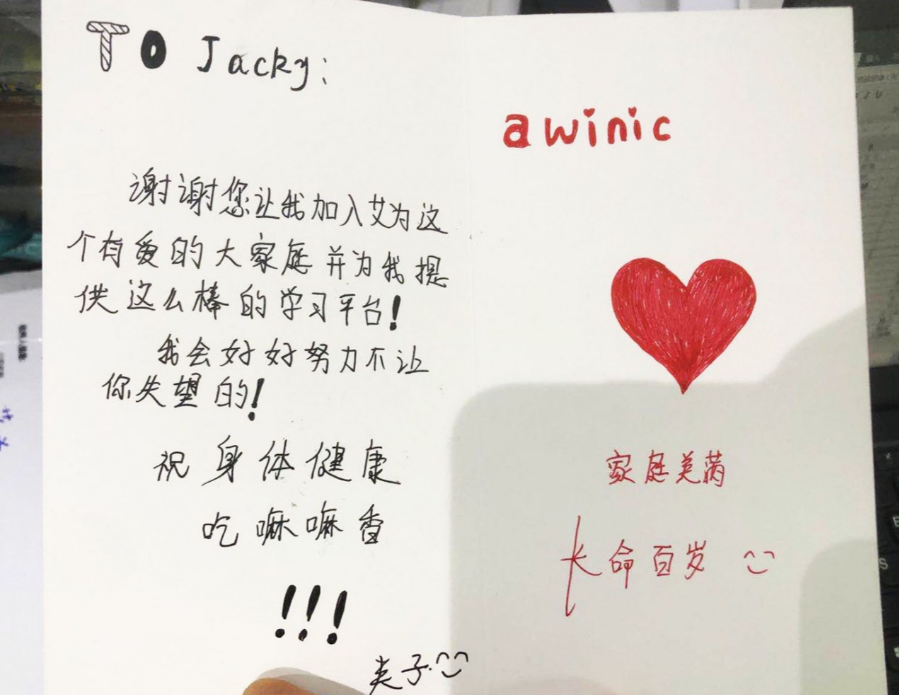 TO Jacky:
谢谢您让我加入艾为这
个有爱的大家庭并为我提
供这么棒的学习平台!
我会好好努力不让
你失望的!
祝身体健康
吃嘛嘛香
!!!
awinic
家庭美满
长命百岁